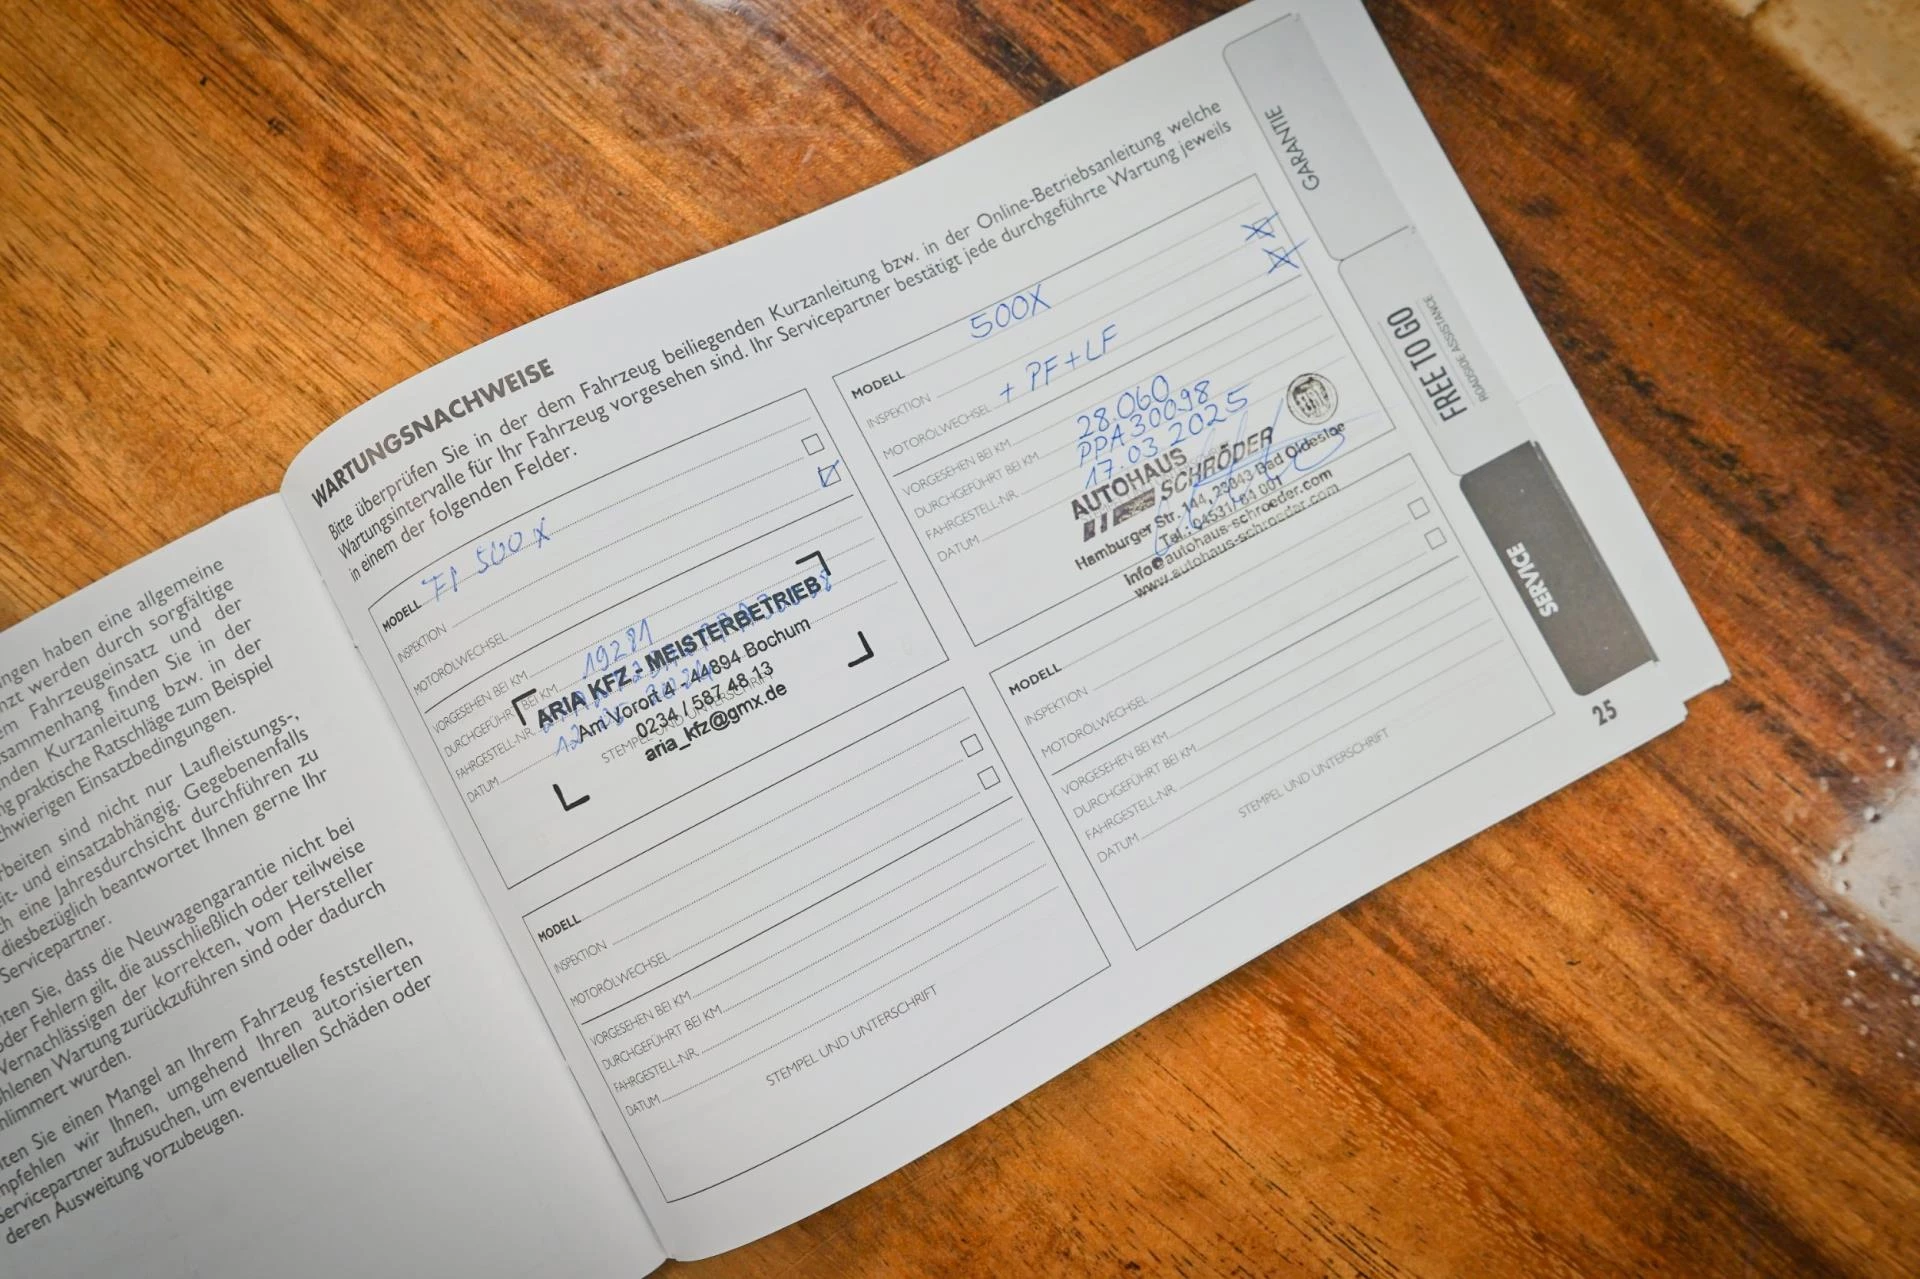 ngen haben eine allgemeine
nzt werden durch sorgfältige
m Fahrzeugeinsatz und der
sammenhang finden Sie in der
nden Kurzanleitung bzw. in der
ng praktische Ratschläge zum Beispiel
chwierigen Einsatzbedingungen.
rbeiten sind nicht nur Laufleistungs-,
eit- und einsatzabhängig. Gegebenenfalls
ch eine Jahresdurchsicht durchführen zu
diesbezüglich beantwortet Ihnen gerne Ihr
Servicepartner.
hten Sie, dass die Neuwagengarantie nicht bei
oder Fehlern gilt, die ausschließlich oder teilweise
Vernachlässigen der korrekten, vom Hersteller
ohlenen Wartung zurückzuführen sind oder dadurch
hlimmert wurden.
ten Sie einen Mangel an Ihrem Fahrzeug feststellen,
mpfehlen wir Ihnen, umgehend Ihren autorisierten
Servicepartner aufzusuchen, um eventuellen Schäden oder
deren Ausweitung vorzubeugen.
WARTUNGSNACHWEISE
Bitte überprüfen Sie in der dem Fahrzeug beiliegenden Kurzanleitung bzw. in der Online-Betriebsanleitung welche
Wartungsintervalle für Ihr Fahrzeug vorgesehen sind. Ihr Servicepartner bestätigt jede durchgeführte Wartung jeweils
in einem der folgenden Felder.
MODELL FI 500X
INSPEKTION
MOTORÖLWECHSEL
VORGESEHEN BEI KM
DURCHGEFÜHRT BEI KM 19281
FAHRGESTELL-NR.
DATUM
STEMPEL UND UNTERSCHRIFT
ARIA KFZ - MEISTERBETRIEB
Am Vorort 4 - 44894 Bochum
0234 / 587 48 13
aria_kfz@gmx.de
MODELL 500X
INSPEKTION
MOTORÖLWECHSEL + PF + LF
VORGESEHEN BEI KM
DURCHGEFÜHRT BEI KM 28.060
FAHRGESTELL-NR. PPA30098
DATUM 17.03.2025
AUTOHAUS
SCHRÖDER
Hamburger Str. 144, 23843 Bad Oldesloe
Tel.: 04531/84 001
Info@autohaus-schroeder.com
www.autohaus-schroeder.com
MODELL
INSPEKTION
MOTORÖLWECHSEL
VORGESEHEN BEI KM
DURCHGEFÜHRT BEI KM
FAHRGESTELL-NR.
DATUM
STEMPEL UND UNTERSCHRIFT
MODELL
INSPEKTION
MOTORÖLWECHSEL
VORGESEHEN BEI KM
DURCHGEFÜHRT BEI KM
FAHRGESTELL-NR.
DATUM
STEMPEL UND UNTERSCHRIFT
GARANTIE
FREE TO GO
ROADSIDE ASSISTANCE
SERVICE
25